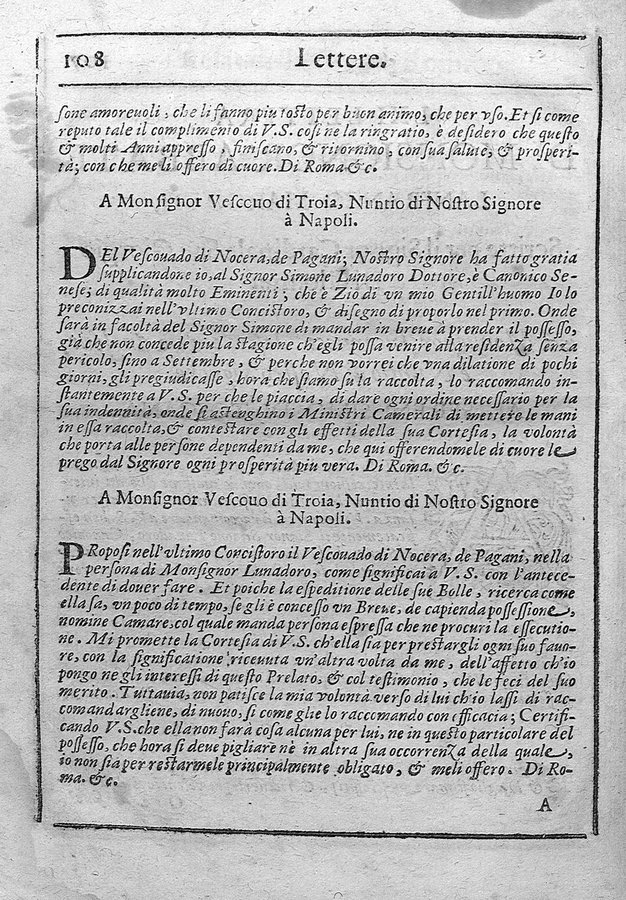 108 Lettere.
ſone amoreuoli, che li fanno piu toſto per buon animo, che per vſo. Et ſi come
reputo tale il complimento di V.S. coſi ne la ringratio, è deſidero che queſto
& molti Anni appreſſo, finiſcano, & ritornino, con ſua ſalute, & proſperi-
tà; con che me li offero di cuore. Di Roma &c.
A Monſignor Veſcouo di Troia, Nuntio di Noſtro Signore
à Napoli.
DEl Veſcouado di Nocera, de Pagani; Noſtro Signore ha fatto gratia
ſupplicandone io, al Signor Simone Lunadoro Dottore, è Canonico Se-
neſe; di qualità molto Eminenti; che è Zio di vn mio Gentill'huomo Io lo
preconizzai nell'vltimo Conciſtoro, & diſegno di proporlo nel primo. Onde
ſarà in facoltà del Signor Simone di mandar in breue à prender il poſſeſſo,
già che non concede piu la ſtagione ch'egli poſſa venire alla reſidenza ſenza
pericolo, ſino a Settembre, & perche non vorrei che vna dilatione di pochi
giorni, gli pregiudicaſſe, hora che ſiamo ſu la raccolta, lo raccomando in-
ſtantemente a V.S. per che le piaccia, di dare ogni ordine neceſſario per la
ſua indennità, onde ſi aſtenghino i Miniſtri Camerali di mettere le mani
in eſſa raccolta, & conteſtare con gli effetti della ſua Corteſia, la volontà
che porta alle perſone dependenti da me, che qui offerendomele di cuore le
prego dal Signore ogni proſperità piu vera. Di Roma. &c.
A Monſignor Veſcouo di Troia, Nuntio di Noſtro Signore
à Napoli.
PRopoſi nell'vltimo Conciſtoro il Veſcouado di Nocera, de Pagani, nella
perſona di Monſignor Lunadoro, come ſignificai à V.S. con l'antece-
dente di douer fare. Et poiche la eſpeditione delle ſue Bolle, ricerca come
ella ſa, vn poco di tempo, ſe gli è conceſſo vn Breue, de capienda poſſeſſione,
nomine Camare, col quale manda perſona eſpreſſa che ne procuri la eſſecutio-
ne. Mi promette la Corteſia di V.S. ch'ella ſia per preſtargli ogni ſuo fauo-
re, con la ſignificatione riceuuta vn'altra volta da me, dell'affetto ch'io
pongo ne gli intereſſi di queſto Prelato, & col teſtimonio, che le feci del ſuo
merito. Tuttauia, non patiſce la mia volontà verſo di lui ch'io laſſi di rac-
commandargliene, di nuouo, ſi come glie lo raccomando con efficacia; Certifi-
cando V.S. che ella non farà coſa alcuna per lui, ne in queſto particolare del
poſſeſſo, che hora ſi deue pigliare nè in altra ſua occorrenza della quale,
io non ſia per reſtarmele principalmente obligato, & meli offero. Di Ro-
ma. &c.
A